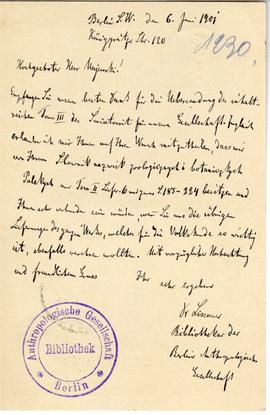 Berlin S.W. den 6. Juni 1901
Königgrätzer Str. 120
1230.
Hochgeehrter Herr Majewski!
Empfangen Sie unseren besten Dank für die Uebersendung des inhalt-
reichen Tom III des Swiatowit für unsere Gesellschaft. Zugleich
erlaube ich mir Ihnen auf Ihren Wunsch mitzutheilen, dass wir
von Ihrem Slownik nazwisk zoologicznych i botanicznych
Polskych nur Tom II S. 185-224 besitzen und
Ihnen sehr verbunden sein würden, wenn Sie uns die übrigen
Lieferungen des ganzen Werkes, welches für die Volkskunde so wichtig
ist, ebenfalls senden wollten. Mit vorzüglicher Hochachtung
und freundlichem Gruss
Ihr
sehr ergebener
Dr Lissauer
Bibliothekar der
Berliner Anthropologischen
Gesellschaft
Anthropologische Gesellschaft
Bibliothek
Berlin